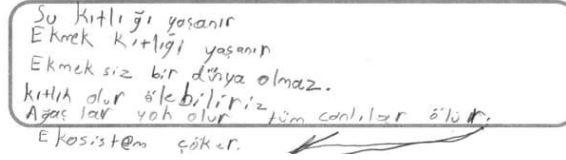 Su kıtlığı yaşanır
Ekmek kıtlığı yaşanır
Ekmek siz bir dünya olmaz.
kıtlık olur ölebiliriz
Ağaç lar yok olur tüm canlılar ölür.
Ekosistem çöker.